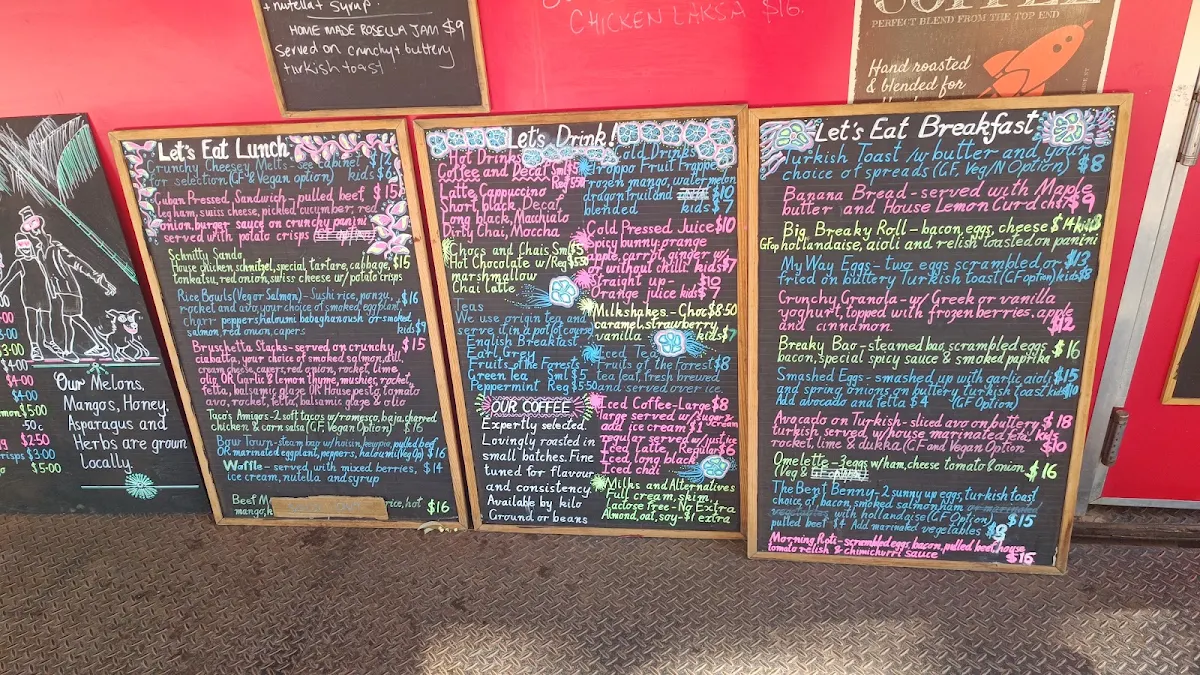 + nutella + syrup
HOME MADE ROSELLA JAM $9
Served on crunchy + buttery
turkish toast
CHICKEN LAKSA $16.
COFFEE
PERFECT BLEND FROM THE TOP END
Hand roasted
& blended for
$3.00
$4.00
$4.00
$5.00
.50c
$2.50
$3.00
$5.00
Our Melons,
Mango's, Honey,
Asparagus and
Herbs are grown
Locally.
Let's Eat Lunch
Crunchy Cheesey Melt - see cabinet $12
for selection (GF & Vegan option) kids $6
Cuban Pressed Sandwich - pulled beef $15
leg ham, swiss cheese, pickled cucumber, red
onion, burger sauce on crunchy panini
served with potato crisps
Schnitty Sando
House chicken schnitzel, special tartare, cabbage, $15
tonkatsu, red onion, swiss cheese w/ potato crisps
Rice Bowls (Veg or Salmon) - Sushi rice, ponzu, $16
rocket and avo, your choice of smoked eggplant,
charr peppers, halumi babaghanoush or smoked
salmon, red onion, capers kids $9
Bruschetta Stacks - served on crunchy $15
ciabatta, your choice of smoked salmon, dill,
cream cheese, capers, red onion, rocket, lime
olio OR Garlic & lemon thyme, mushies, rocket,
fetta, balsamic glaze OR House pesto, tomato
avo, rocket, feta, balsamic glaze & olio
Taco's Amigos - 2 soft tacos w/ romesco, baja, charred
chicken & corn salsa (GF, Vegan Option) $16
Baw Town - steam bao w/ hoisin, pulled beef
OR marinated eggplant, peppers, haloumi (Veg Op) $16
Waffle - served with mixed berries, $14
ice cream, nutella and syrup
Beef M rice, hot $16
mango, k
Let's Drink!
Hot Drinks
Coffee and Decaf Sml $5
Reg $5.50
Latte Cappuccino
Short black, Decaf,
Long black, Macchiato
Dirty Chai, Moccha
Chocs and Chais Sml $5
Hot Chocolate w/ Reg $5.50
marshmallow
Chai latte
Teas
We use origin tea and
serve it in a pot of course
English Breakfast
Earl Grey
Fruits of the Forests
Green tea Sml $5
Peppermint Reg $5.50
OUR COFFEE
Expertly selected.
Lovingly roasted in
small batches. Fine
tuned for flavour
and consistency.
Available by kilo
Ground or beans
Cold Drinks
Troppo Fruit Frappe
Frozen mango, watermelon
dragonfruit and $10
blended kids $7
Cold Pressed Juice $10
Spicy bunny: orange
apple, carrot, ginger w/
or without chilli kids $7
Straight up - $10
Orange juice kids $7
Milkshakes - Choc $8.50
caramel, strawberry,
vanilla kids $7
Iced Tea
Fruits of the forest $8
Tea leaf, fresh brewed
and served over ice
Iced Coffee - Large $8
large served w/ sugar &
add ice cream $1 cream
regular served w/ just ice
Iced latte, Regular $6
Iced long black,
Iced chai
Milks and Alternatives
Full cream, skim,
Lactose free - No Extra
Almond, oat, soy - $1 extra
Let's Eat Breakfast
Turkish Toast /w butter and your
choice of spreads (GF, Veg/N Option) $8
Banana Bread - served with Maple
butter and House Lemon Curd ch $7 $9
Big Breaky Roll - bacon, eggs, cheese $14 kids $8
GFop hollandaise, aioli and relish toasted on panini
My Way Eggs - two eggs scrambled or $13
fried on buttery Turkish toast (GF option) kids $8
Crunchy Granola - w/ Greek or vanilla
yoghurt, topped with frozen berries, apple
and cinnamon. $12
Breaky Bao - steamed bao, scrambled eggs $16
bacon, special spicy sauce & smoked paprika
Smashed Eggs - smashed up with garlic aioli $15
and spring onions on buttery turkish toast kids $10
Add avocado and fetta $4 (GF Option)
Avocado on Turkish - sliced avo on buttery $18
turkish, served w/ house marinated feta, kids
rocket, lime & dukka (GF and Vegan Option $10
Omelette - 3 eggs w/ ham, cheese tomato & onion
(Veg & $16
The Bent Benny - 2 sunny up eggs, turkish toast
choice of, bacon, smoked salmon, ham or marinated
vegetables with hollandaise (GF Option) $15
pulled beef $4 Add marinated vegetables $3
Morning Roti - scrambled eggs, bacon, pulled beef, house
tomato relish & chimichurri sauce $16